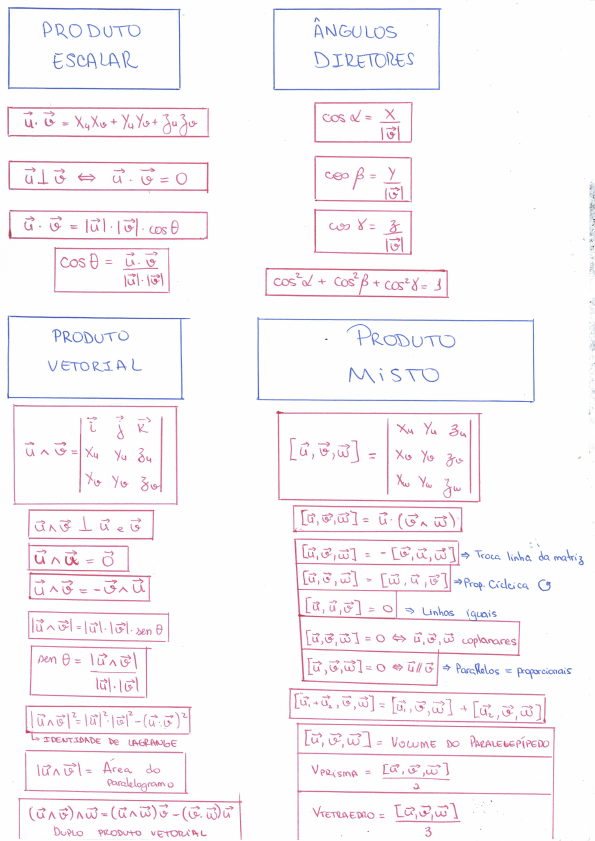 PRODUTO
ESCALAR
u⃗ · v⃗ = XuXv + YuYv + ZuZv
u⃗ ⊥ v⃗ ⇔ u⃗ · v⃗ = 0
u⃗ · v⃗ = |u⃗| · |v⃗| · cos θ
cos θ = u⃗ · v⃗ / |u⃗| · |v⃗|
ÂNGULOS
DIRETORES
cos α = X / |v⃗|
cos β = Y / |v⃗|
cos γ = Z / |v⃗|
cos²α + cos²β + cos²γ = 1
PRODUTO
VETORIAL
u⃗ ∧ v⃗ = | i⃗ j⃗ k⃗ |
| Xu Yu Zu |
| Xv Yv Zv |
u⃗ ∧ v⃗ ⊥ u⃗ e v⃗
u⃗ ∧ u⃗ = 0⃗
u⃗ ∧ v⃗ = -v⃗ ∧ u⃗
|u⃗ ∧ v⃗| = |u⃗| · |v⃗| · sen θ
sen θ = |u⃗ ∧ v⃗| / |u⃗| · |v⃗|
|u⃗ ∧ v⃗|² = |u⃗|² · |v⃗|² - (u⃗ · v⃗)²
↳ IDENTIDADE DE LAGRANGE
|u⃗ ∧ v⃗| = Área do
paralelogramo
(u⃗ ∧ v⃗) ∧ w⃗ = (u⃗ ∧ w⃗) v⃗ - (v⃗ · w⃗) u⃗
DUPLO PRODUTO VETORIAL
PRODUTO
MISTO
[u⃗, v⃗, w⃗] = | Xu Yu Zu |
| Xv Yv Zv |
| Xw Yw Zw |
[u⃗, v⃗, w⃗] = u⃗ · (v⃗ ∧ w⃗)
[u⃗, v⃗, w⃗] = - [v⃗, u⃗, w⃗] ⇒ Troca linha da matriz
[u⃗, v⃗, w⃗] = [w⃗, u⃗, v⃗] ⇒ Prop. Cíclica ↺
[u⃗, u⃗, v⃗] = 0 ⇒ Linhas iguais
[u⃗, v⃗, w⃗] = 0 ⇔ u⃗, v⃗, w⃗ coplanares
[u⃗, v⃗, w⃗] = 0 ⇔ u⃗ // v⃗ ⇒ Paralelos = proporcionais
[u⃗₁ + u⃗₂, v⃗, w⃗] = [u⃗₁, v⃗, w⃗] + [u⃗₂, v⃗, w⃗]
[u⃗, v⃗, w⃗] = VOLUME DO PARALELEPÍPEDO
VPRISMA = [u⃗, v⃗, w⃗] / 2
VTETRAEDRO = [u⃗, v⃗, w⃗] / 3